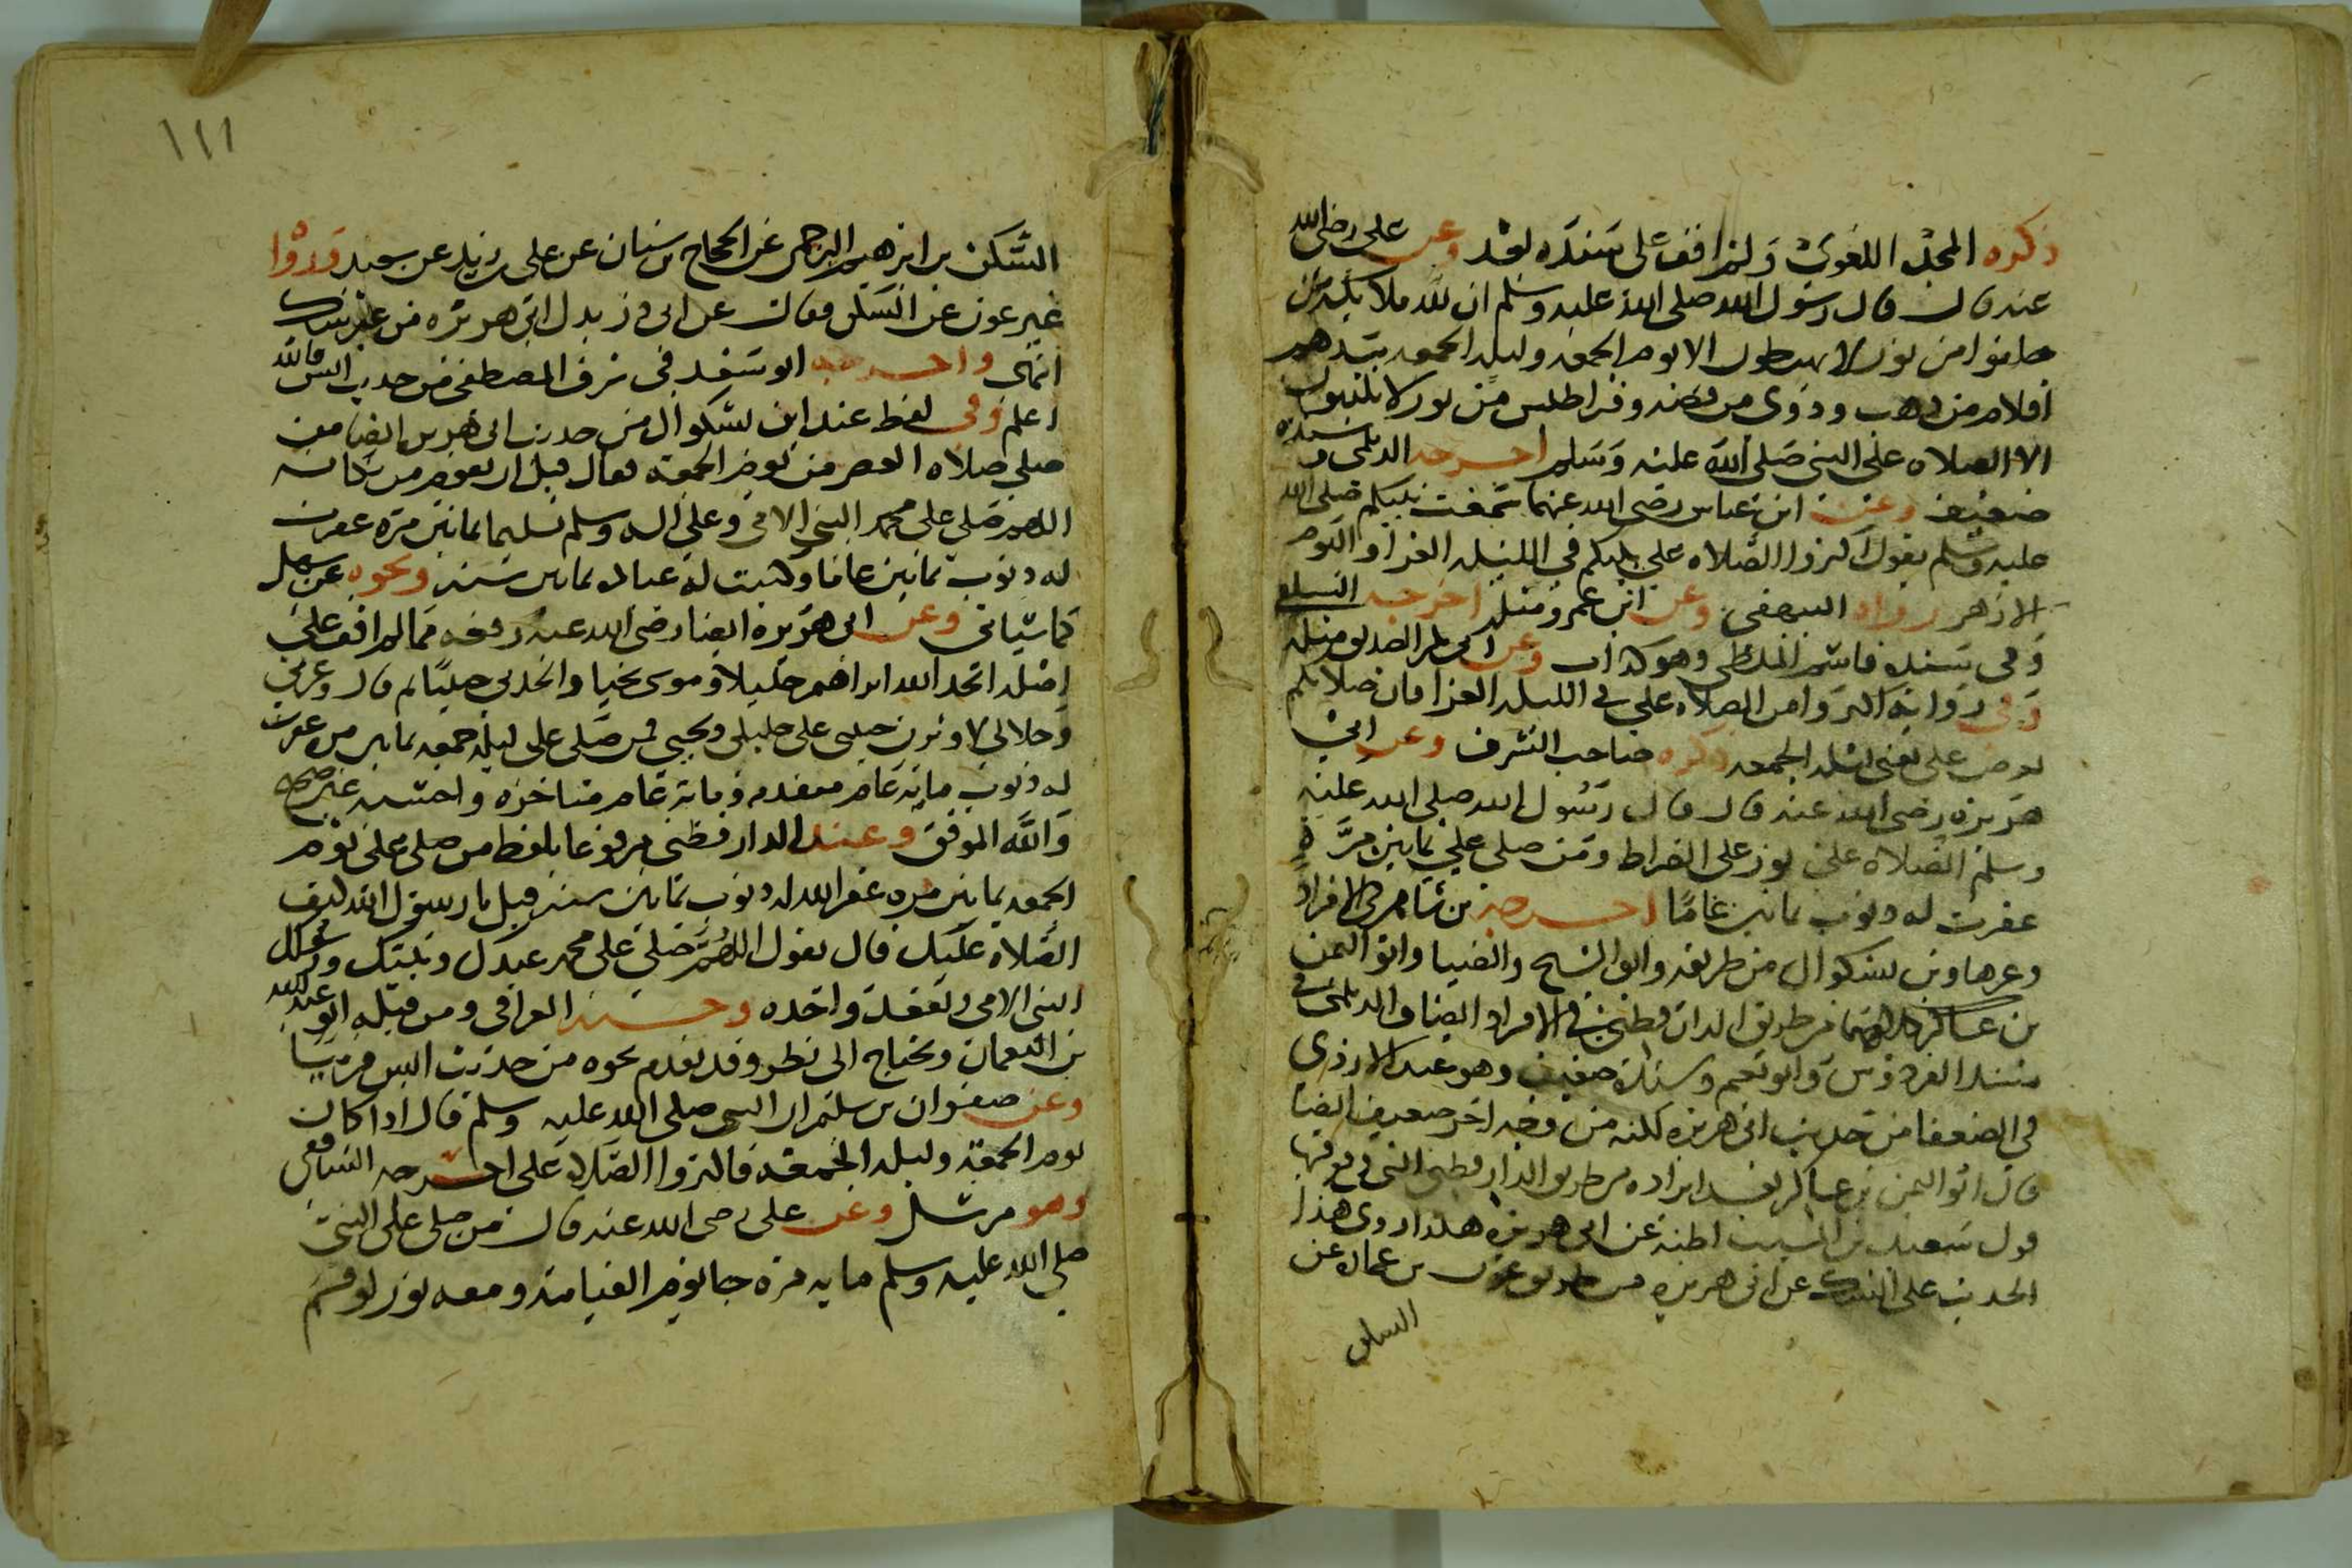 ذكره المجد اللغوي ولم اقف على سنده بعد وعن على رضى الله
عنه قال قال رسول الله صلى الله عليه وسلم ان لله ملايكة
خلقوا من نور لا يهبطون الا يوم الجمعه وليلة الجمعه بيدهم
اقلام من ذهب ودوى من فضه وقراطيس من نور لا يكتبون
الا الصلاه على النبي صلى الله عليه وسلم اخرجه الديلمى وسنده
ضعيف وعن ابن عباس رضى الله عنهما سمعت نبيكم صلى الله
عليه وسلم يقول اكثروا الصلاه على نبيكم في الليله الغرا واليوم
الازهر رواه البيهقى وعن ابن عمر ومثله اخرجه
وفى سنده وهو كذاب وعن ابى بكر الصديق مثله
وفى روايه اكثروا من الصلاه على في الليله الغرا فان صلاتكم
تعرض على يعنى ليلة الجمعه ذكره صاحب الشرف وعن ابي
هريره رضى الله عنه قال قال رسول الله صلى الله عليه
وسلم الصلاه على نور على الصراط ومن صلى علي ثمانين مرة
غفرت له ذنوب ثمانين عاما اخرجه بن شاهين في الافراد
وغيرها وبن بشكوال من طريقه وابو الشيخ والضيا وابو اليمن
بن عساكر من طريق الدارقطني في الافراد ايضا والديلمي في
مسند الفردوس وابو نعيم وسنده ضعيف وهو عند الازدى
فى الضعفا من حديث ابى هريره لكنه من وجه اخر ضعيف ايضا
قال ابو اليمن بن عساكر ايراده من طريق الدارقطني التي
قول سعيد بن المسيب اظنه عن ابى هريره هكذا روى هذا
الحديث على الشك عن ابى هريره من طريق عون بن عماره عن
السكن
١١١
السكن بن ابرهيم البرجمي عن الحجاج بن سنان عن على بن زيد عن سعيد ورواه
غير عون عن السكن فقال عن ابى ذر بدل ابى هريره من غير شك
انتهى واخرجه ابو سعد فى شرف المصطفى من حديث انس فالله
اعلم وفى لفظ عند ابن بشكوال من حديث ابى هريره ايضا من
صلى صلاه العصر من يوم الجمعه فقال قبل ان يقوم من مكانه
اللهم صلي على محمد النبى الامى وعلى اله وسلم تسليما ثمانين مره غفرت
له ذنوب ثمانين عاما وكتبت له عباده ثمانين سنه ونحوه عن سهل
كما سياتى وعن ابى هريره ايضا رضى الله عنه رفعه مما لم اقف على
اصله اتخذ الله ابراهيم خليلا وموسى نجيا واتخذنى حبيبا ثم قال وعزتي
وجلالى لاوثرن حبيبى على خليلى ونجيى فمن صلى على ليلة جمعه ثمانين مره غفرت
له ذنوب مائة عام متقدمه ومائة عام متاخره واحسبه غير صحيح
والله الموفق وعند الدارقطنى مرفوعا بلفظ من صلى على يوم
الجمعه ثمانين مره غفر الله له ذنوب ثمانين سنه قيل يارسول الله كيف
الصلاه عليك قال يقول اللهم صلي على محمد عبدك ونبيك ورسولك
النبى الامى وتعقد واحده وحسنه العراقى ومن قبله ابو عبد الله
بن النعمان ويحتاج الى نظر وقد تقدم نحوه من حديث انس قريبا
وعن صفوان بن سليم ان النبى صلى الله عليه وسلم قال اذا كان
يوم الجمعه وليلة الجمعه فاكثروا الصلاه على اخرجه الشافعى
وهو مرسل وعن على رضى الله عنه قال من صلى على النبي
صلى الله عليه وسلم مايه مره جا يوم القيامه ومعه نور لو قسم